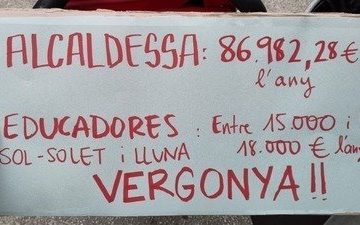 ALCALDESSA: 86.982,28€
l'any
EDUCADORES : Entre 15.000 i
SOL-SOLET i LLUNA 18.000 € l'any
VERGONYA!!